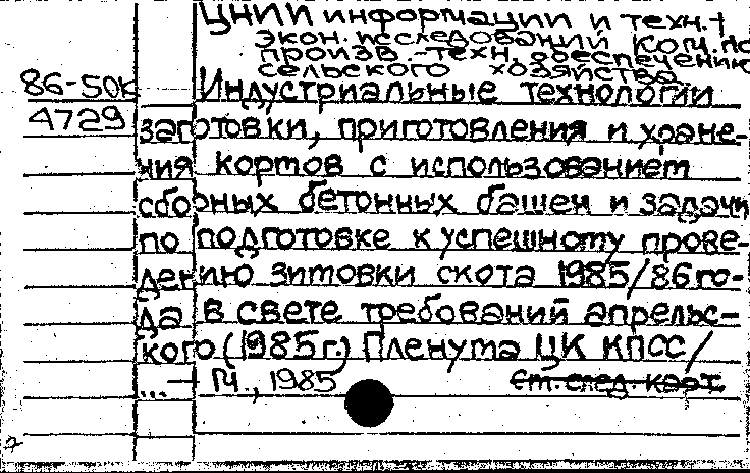 ЦНИИ информации и техн.+
экон. исследований ком. по
произв. техн. обеспечению
сельского хозяйства
86-50к Индустриальные технологии
4729 заготовки, приготовления и хране-
ния кортов с использованием
сборных бетонных башен и задачи
по подготовке к успешному прове-
дению зимовки скота 1985/86 го-
да в свете требований апрельс-
кого (1985г.) Пленума ЦК КПСС/
... — М., 1985 См. след. карт.